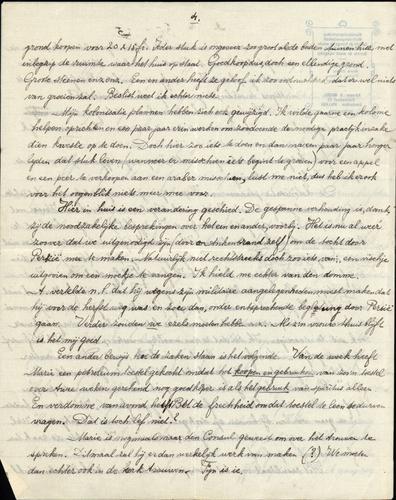 4.
grond koopen voor 20 à 15 fr. Ieder stuk is ongeveer zoo groot als de beiden tuinen hier, met
inbegrip de ruimte waar het huis op staat. Goedkoop dus, doch een ellendige grond.
Groote steenen en zons. Een en ander heeft ze geloof ik zoo ontmoedigd dat er wel niets
van groeien zal. Beslist weet ik echter niets.
Mijn kolonisatie plannen hebben zich ook gewijzigd. Ik wilde gaarne een kolonie
helpen oprichten en een paar jaar er in werken om zoodoende de noodige practijk
die kwestie op te doen. Doch hier zoo iets te doen en dan maar een paar jaar honger
lijden dat stuk leven, wanneer er misschien iets begint te groeien voor een appel
en een peer te verkoopen aan een araber misschien, lust me niet, dus heb ik er ook
voor het oogenblik niets meer mee voor.
Hier in huis is een verandering geschied. De gespannen verhouding is, dank
zij de noodzakelijke besprekingen over het een en ander, voorbij. Het is nu al weer
zoover dat we uitgenoodigd zijn door den Ankenbrand zelf om de tocht door
Perzië mee te maken. Natuurlijk niet rechtstreeks doch zoo iets, van, een vischje
uitgooien om een snoekje te vangen. Ik hield me echter van den domme.
A. vertelde n.l. dat hij wegens zijn militaire aangelegenheden moest maken dat
hij voor de herfst weg was en zoo dan, onder entsprechende begleitung door Persië
gaan. Verder zouden we niets moeten hebben enz. Als zijn vrouw thuis blijft
is het mij goed.
Een ander bewijs hoe de zaken staan is het volgende. Van de week heeft
Marie een petroleum toestel gekocht omdat het koopen en gebruiken van zoo'n toestel
over twee weken gerekend nog goedkooper is als het gebruik van spiritus alleen.
En verdomme, vanavond heeft Bet de frechheid om dat toestel te leen te durven
vragen. Dat is toch lief niet?
Marie is nog maals naar den Consul geweest om over het trouwen te
spreken. Ditmaal zal hij er dan werkelijk werk van maken (?) We moeten
dan echter ook in de kerk trouwen. Fijn is ie.